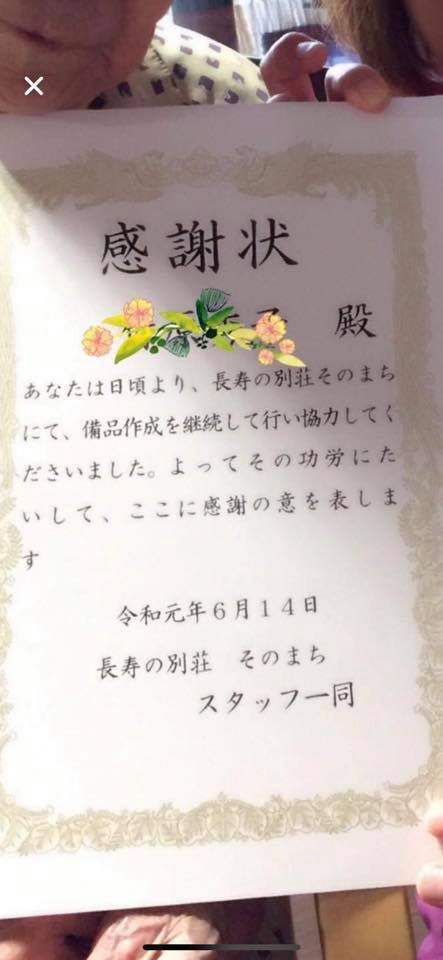 感謝状
殿
あなたは日頃より、長寿の別荘そのまち
にて、備品作成を継続して行い協力してく
ださいました。よってその功労にた
いして、ここに感謝の意を表しま
す
令和元年6月14日
長寿の別荘 そのまち
スタッフ一同